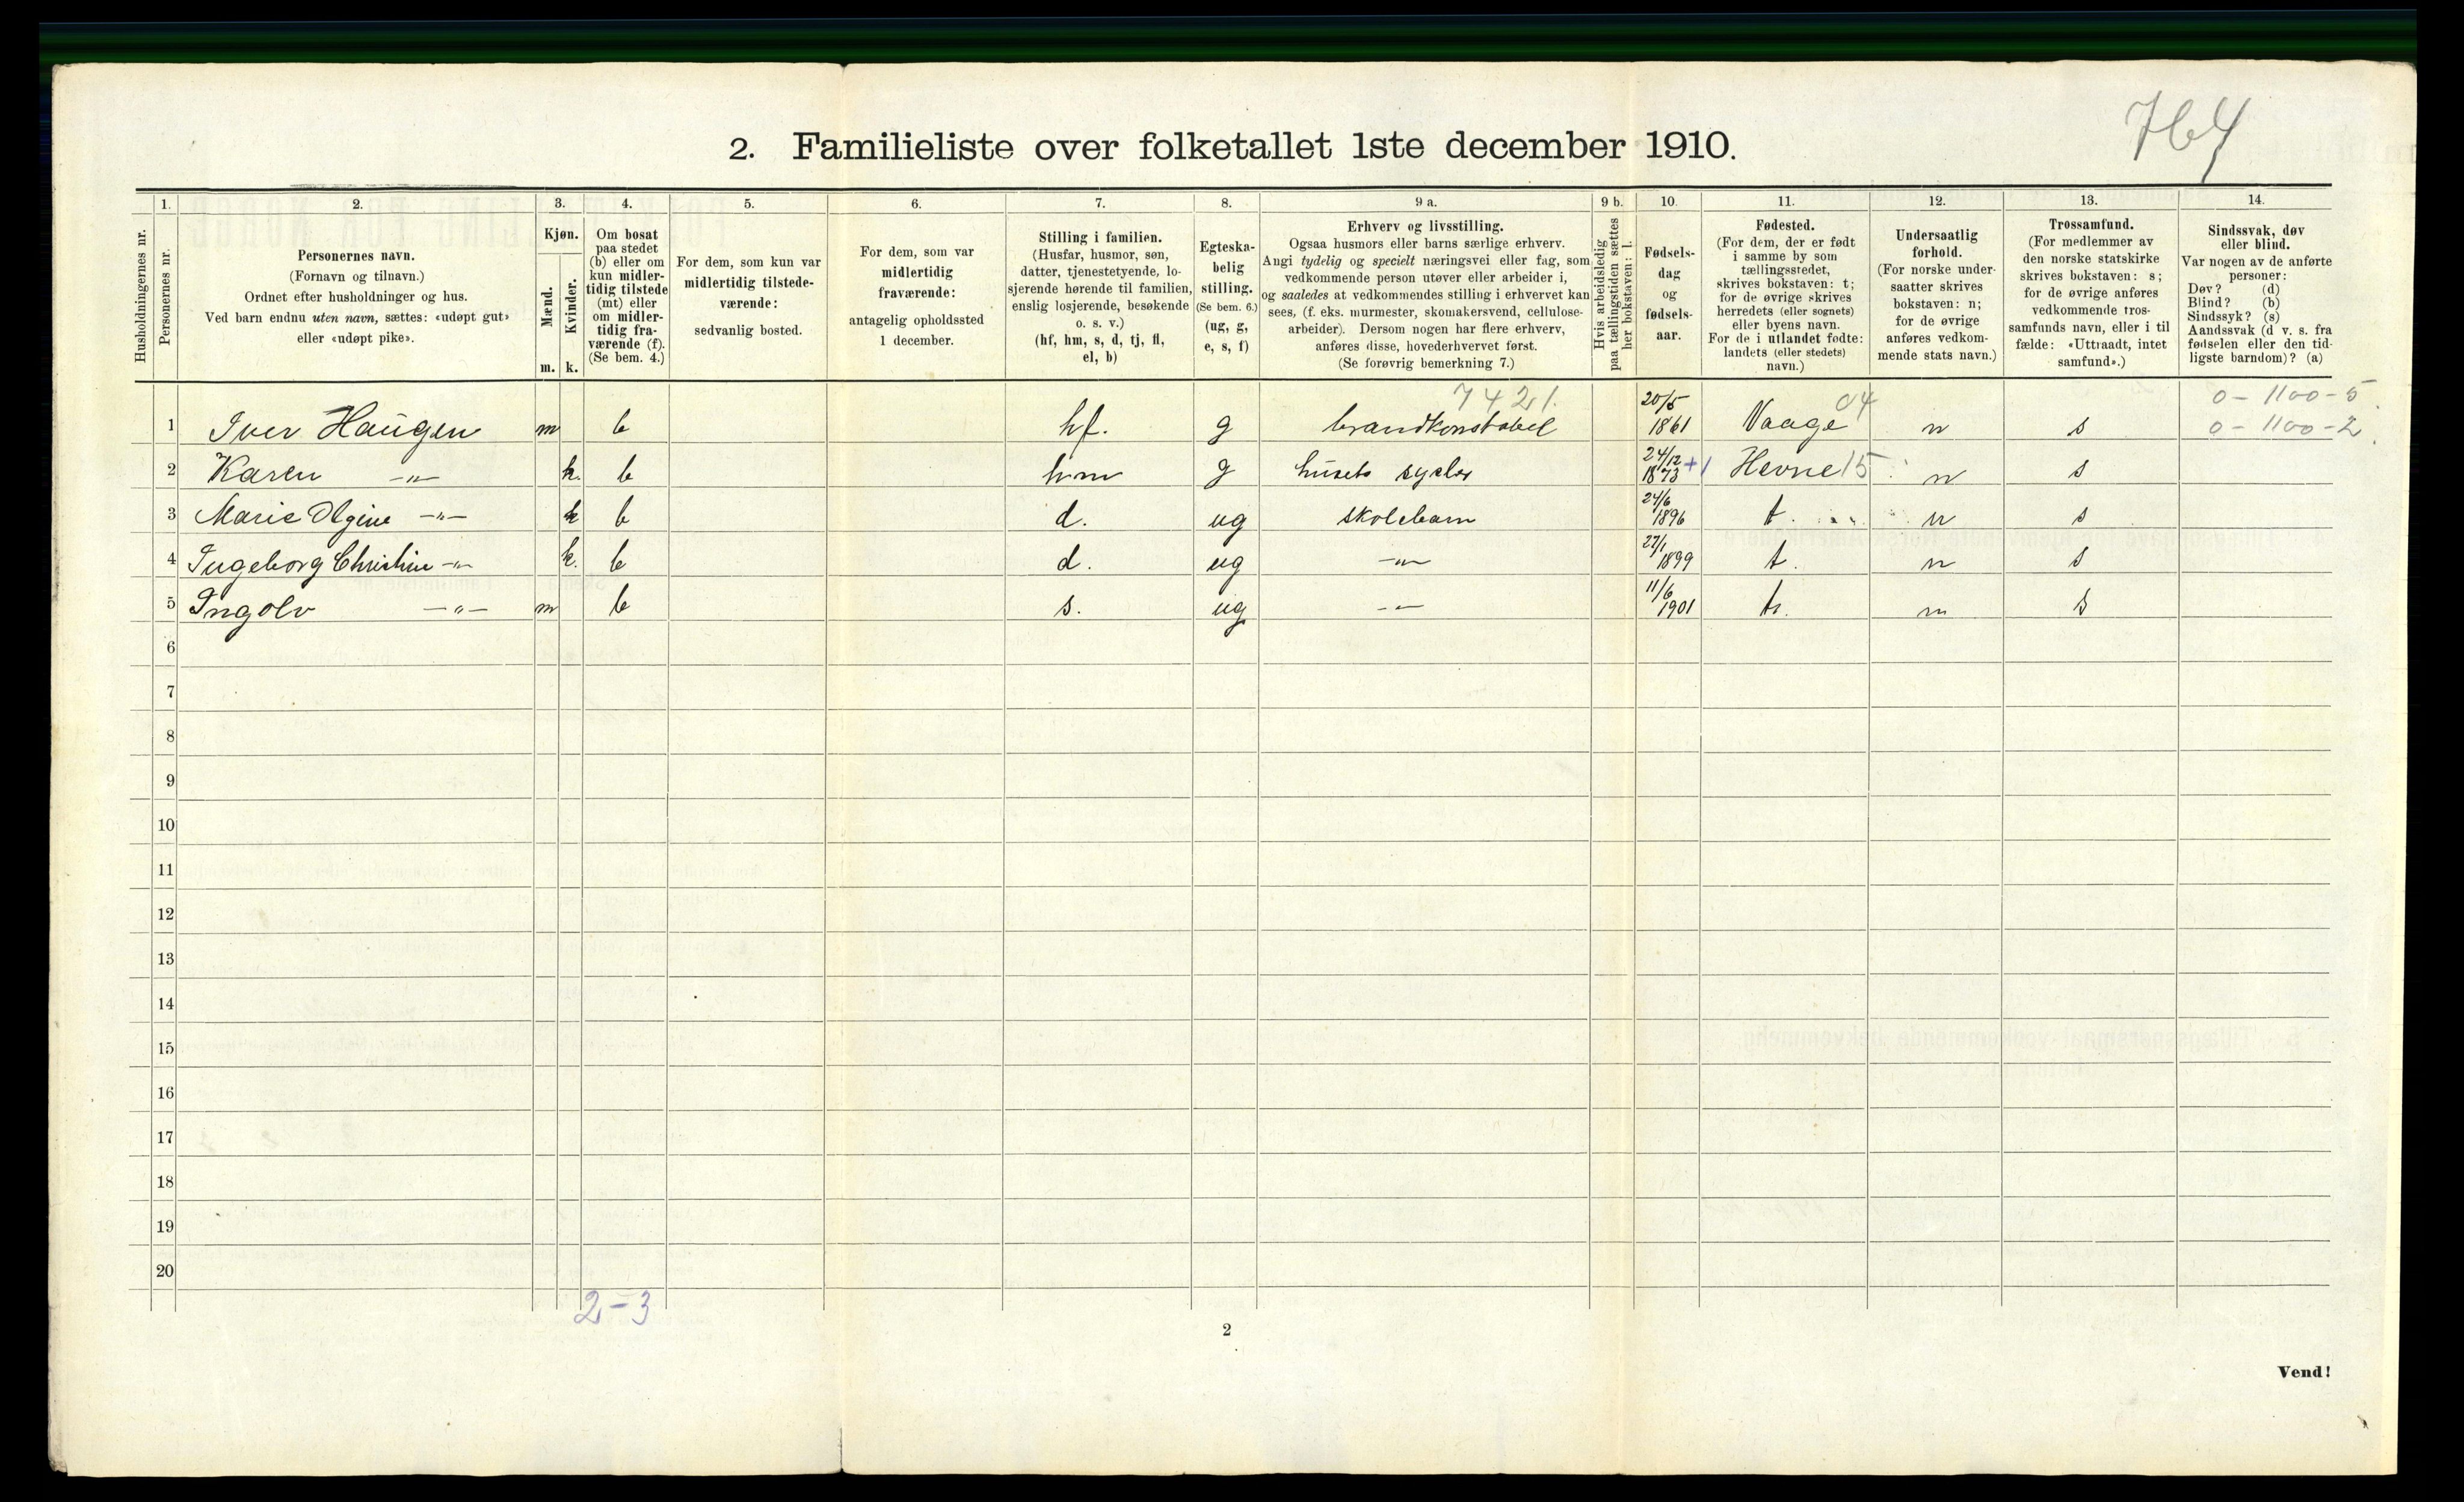 764
2. Familieliste over folketallet 1ste december 1910.
Husholdningernes nr.
1. Personernes nr.
2. Personernes navn.
(Fornavn og tilnavn.)
Ordnet efter husholdninger og hus.
Ved barn endnu uten navn, sættes: «udøpt gut»
eller «udøpt pike».
3. Kjøn.
Mænd. Kvinder.
m. k.
4. Om bosat
paa stedet
(b) eller om
kun midler-
tidig tilstede
(mt) eller
om midler-
tidig fra-
værende (f).
(Se bem. 4.)
5. For dem, som kun var
midlertidig tilstede-
værende:
sedvanlig bosted.
6. For dem, som var
midlertidig
fraværende:
antagelig opholdssted
1 december.
7. Stilling i familien.
(Husfar, husmor, søn,
datter, tjenestetyende, lo-
sjerende hørende til familien,
enslig losjerende, besøkende
o. s. v.)
(hf, hm, s, d, tj, fl,
el, b)
8. Egteska-
belig
stilling.
(Se bem. 6.)
(ug, g,
e, s, f)
9 a. Erhverv og livsstilling.
Ogsaa husmors eller barns særlige erhverv.
Angi tydelig og specielt næringsvei eller fag, som
vedkommende person utøver eller arbeider i,
og saaledes at vedkommendes stilling i erhvervet kan
sees, (f. eks. murmester, skomakersvend, cellulose-
arbeider). Dersom nogen har flere erhverv,
anføres disse, hovederhvervet først.
(Se forøvrig bemerkning 7.)
9 b. Hvis arbeidsledig
paa tællingstiden sættes
her bokstaven: l.
10. Fødsels-
dag
og
fødsels-
aar.
11. Fødested.
(For dem, der er født
i samme by som
tællingsstedet,
skrives bokstaven: t;
for de øvrige skrives
herredets (eller sognets)
eller byens navn.
For de i utlandet fødte:
landets (eller stedets)
navn.)
12. Undersaatlig
forhold.
(For norske under-
saatter skrives
bokstaven: n;
for de øvrige
anføres vedkom-
mende stats navn.)
13. Trossamfund.
(For medlemmer av
den norske statskirke
skrives bokstaven: s;
for de øvrige anføres
vedkommende tros-
samfunds navn, eller i til
fælde: «Uttraadt, intet
samfund».)
14. Sindssvak, døv
eller blind.
Var nogen av de anførte
personer:
Døv? (d)
Blind? (b)
Sindssyk? (s)
Aandssvak (d v. s. fra
fødselen eller den tid-
ligste barndom)? (a)
7421. 04 0-1100-5
1 Iver Haugen m b hf. g brandkonstabel 20/5 1861 Vaage n s 0-1100-2
2 Karen -"- k. b hm g husets sysler 24/12 1873 +1 Hevne 15 n s
3 Marie Olgine -"- k b d. ug skolebarn 24/6 1896 t. n s
4 Ingeborg Christine -"- k. b d. ug -"- 27/1 1899 t. n s
5 Ingolv -"- m b s. ug -"- 11/6 1901 t. n s
6
7
8
9
10
11
12
13
14
15
16
17
18
19
20
2-3
2
Vend!